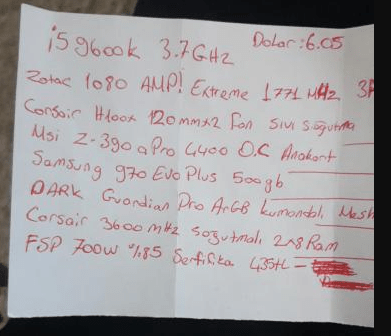 i5 9600k 3.7GHz Dolar:6.05
Zotac 1080 AMP! Extreme 1771 MHz
Corsair H100x 120mmx2 Fan Sıvı soğutma
Msi Z-390 aPro 4400 O.C Anakart
Samsung 970 Evo Plus 500gb
DARK Guardian Pro ArGB kumandalı Mesh
Corsair 3600 mHz soğutmalı 2x8 Ram
FSP 700W %85 Sertifika 435tL